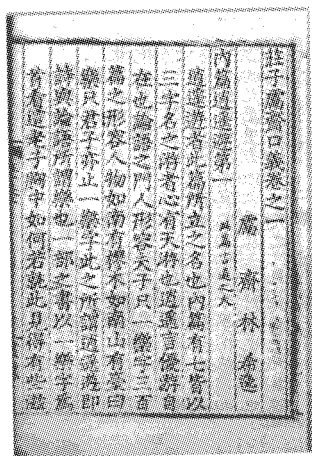 莊子鬳齋口義卷之一
鬳齋林希逸
內篇逍遙遊第一 此篇言之大
逍遙游者此篇所立之名也內篇有七皆以
三字名之游者心有天游也逍遙言優游自
在也論語之門人形容夫子只一樂字三百
篇之形容人物如南有樛木如南山有臺曰
樂只君子亦止一樂字此之所謂逍遙游即
詩與論語所謂樂也一部之書以一樂字為
首看這老子胸中如何若就此見得有些滋